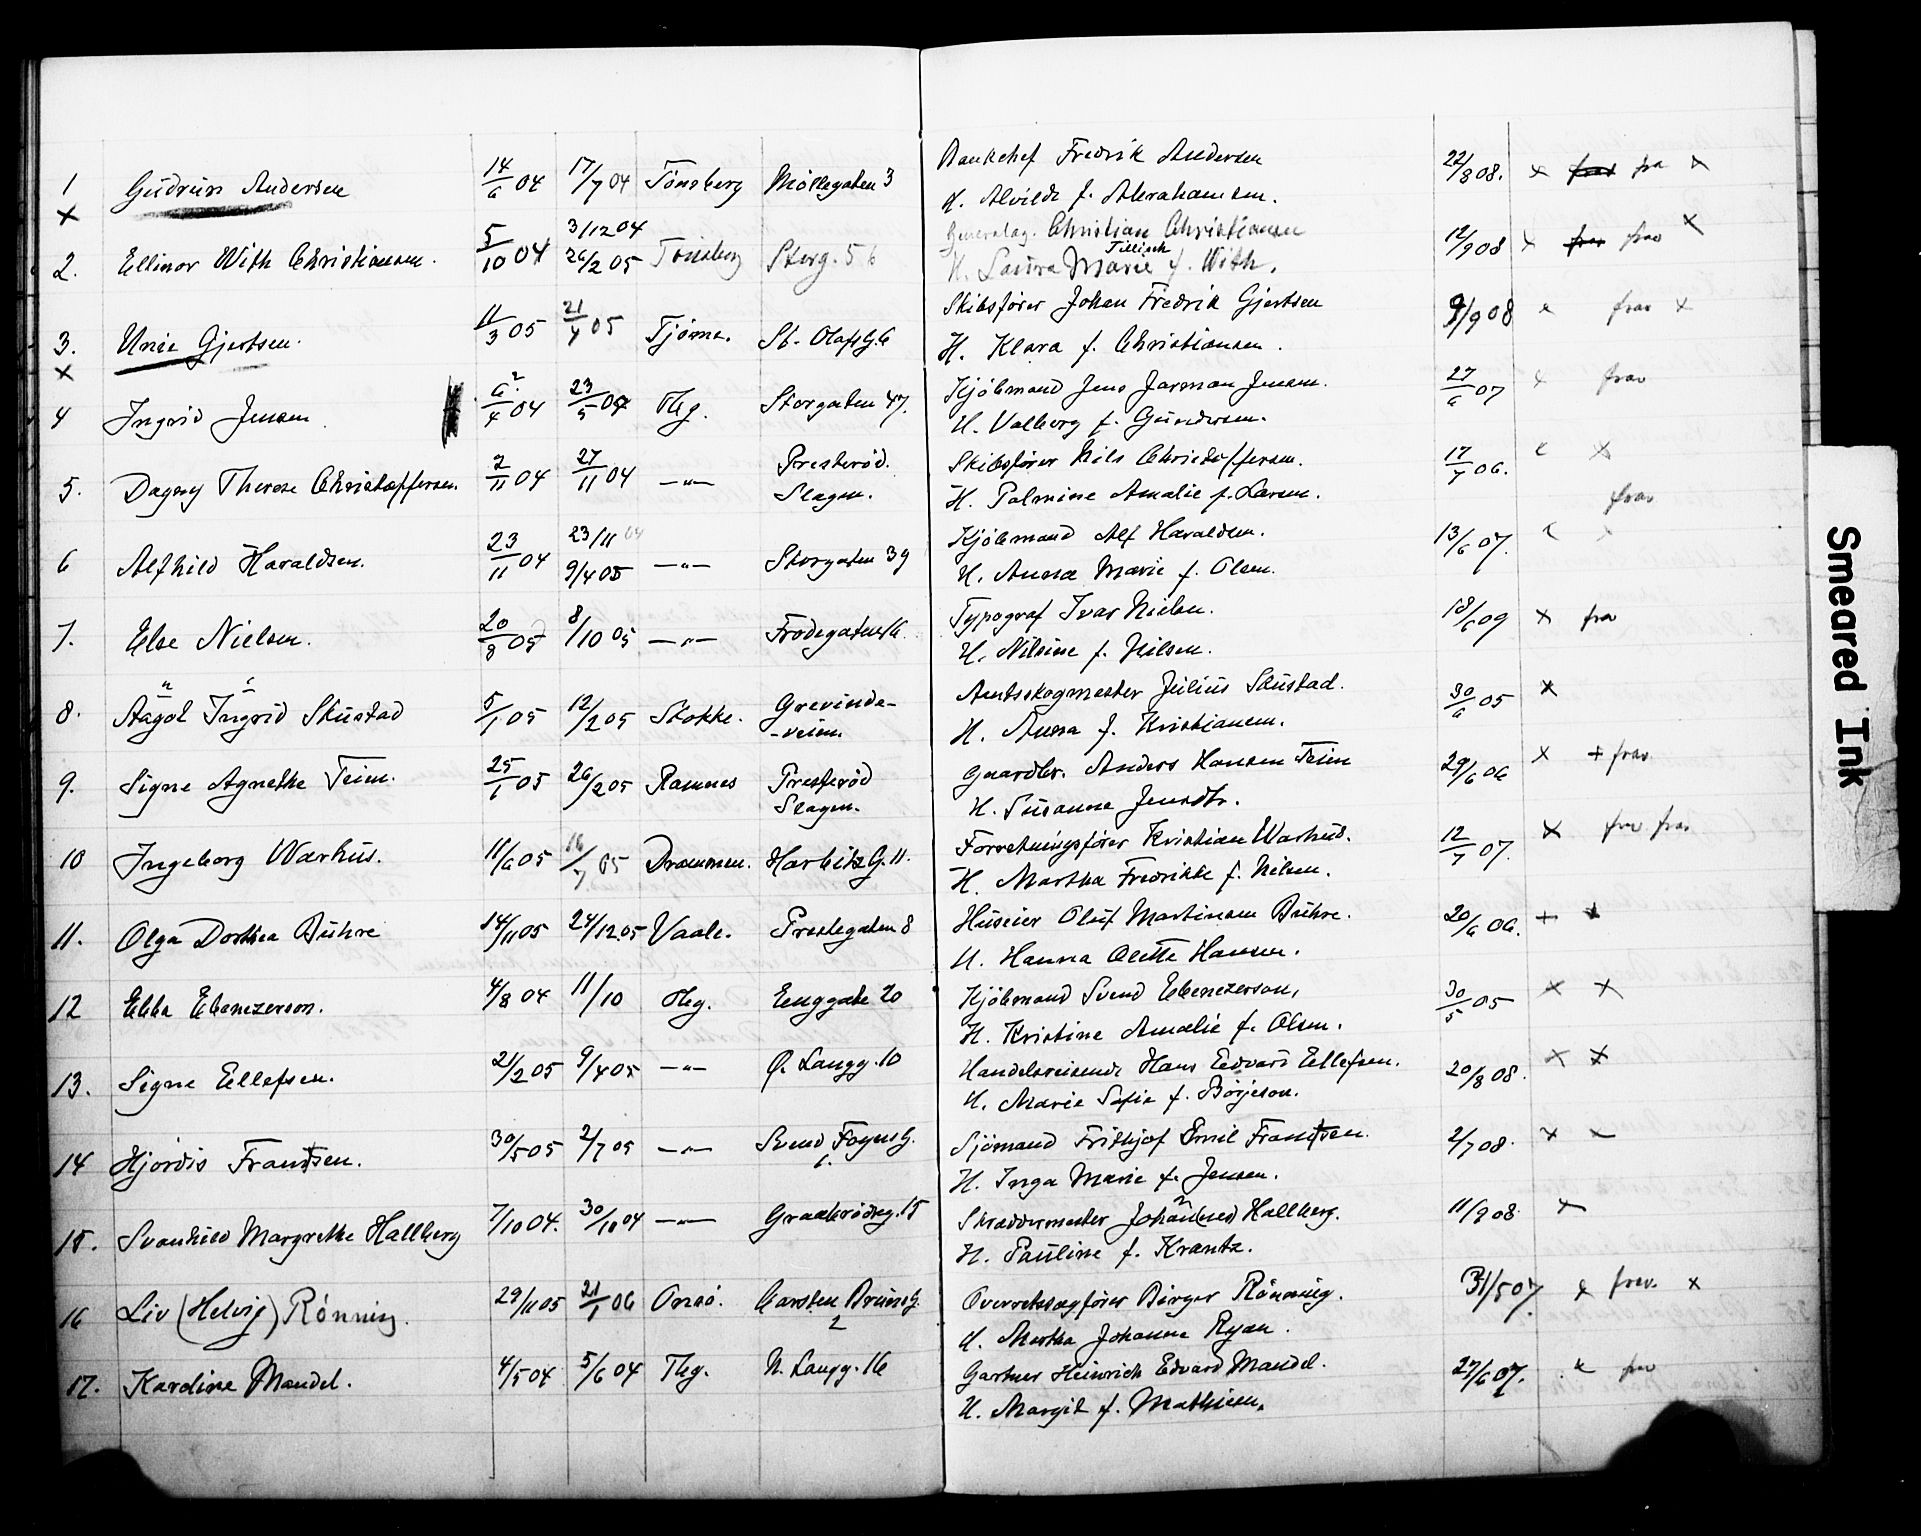 1 Gudrun Andersen 14/6 04 17/7 04 Tönsberg Möllegaten 3 Bankchef Fredrik Andersen 22/8 08. x fra x
x H. Alvilde f. Abrahamsen.
2. Ellinor With Christiansen. 5/10 04 3/12 04 26/2 05 Tönsberg Storg. 56 Generalag. Christian Christiansen 12/9 08 x frav x
H. Laura Marie Tillisch f. With.
3. Unie Gjertsen. 11/3 05 21/4 05 Tjöme. St. Olafs G. 6 Skibsförer Johan Fredrik Gjertsen 9/9 08 x frav x
x H. Klara f. Christiansen.
4 Ingrid Jensen 6?/4 04 23/5 04 Tbg. Storgaten 47. Kjöbmand Jens Jarman Jensen. 27/6 07 x frav
H. Valborg f. Gundersen.
5. Dagny Therese Christoffersen. 2/11 04 27/11 04 —"— Presteröd. Slagen. Skibsförer Nils Christoffersen. 17/7 06. x x
H. Palmine Amalie f. Larsen. frav
6 Alfhild Haraldsen. 23/11 04 23/11 04 9/4 05 —"— Storgaten 39 Kjöbmand Alf Haraldsen. 13/6 07. x x
H. Anna Marie f. Olsen.
7. Else Nielsen. 20/8 05 8/10 05 —"— Frodegaten 16. Typograf Ivar Nielsen. 18/6 09 x fra
H. Nilsine f. Nilsen.
8. Aagot Ingrid Skustad 5/1 05 12/2 05 Stokke. Grevinde-veien. Amtsskogmester Julius Skustad. 30/6 05 x
H. Anna f. Kristiansen.
9. Signe Agnethe Teien. 25/1 05 26/2 05 Ramnes Presteröd Slagen. Gaardbr. Anders Hansen Teien 29/6 06 x + frav
H. Susanne Jensdtr.
10 Ingeborg Warhus. 11/6 05 16/7 05 Drammen. Harbitz G. 11. Forretningsförer Kristian Warhus. 12/7 07. x frav
H. Martha Fredrikke f. Nilsen.
11. Olga Dorthea Buhre 14/11 05 24/12 05 Vaale. Prestegaten 8 Huseier Oluf Martinsen Buhre. 20/6 06. + x
H. Hanna Olette Hansen.
12 Ebba Ebenezerson. 4/8 04 11/10 Tbg. Enggate 20 Kjöbmand Svend Ebenezerson, 30/5 05 x x
H. Kristine Amalie f. Olsen.
13. Signe Ellefsen. 21/2 05 9/4 05 —"— Ö. Langg. 10 Handelsreisende Hans Edvard Ellefsen. 20/8 08. x x
H. Marie Sofie f. Börjeson.
14 Hjördis Frantsen. 30/5 05 2/7 05 —"— Svend Foyns G. 6. Sjömand Frithjof Emil Frantsen. 2/7 08. x
H. Inga Marie f. Jensen.
15. Svanhild Margrethe Hallberg 7/10 04. 30/10 04 —"— Graabrödreg. 15 Skraddermester Johan(nes) Hallberg. 11/9 08. x
H. Pauline f. Krantz.
16 Liv (Helvig) Rönning. 29/11 05 21/1 06 Onsö. Carsten Bruns G. 2 Overretssagförer Birger Rönning. 31/5 07. x frav. x
H. Martha Johanne Ryan.
17. Karoline Mandel. 4/5 04 5/6 04 Tbg. N. Langg. 16 Gartner Heinrich Edvard Mandel. 27/6 07. x fra
H. Margit f. Mathisen.
Smeared Ink